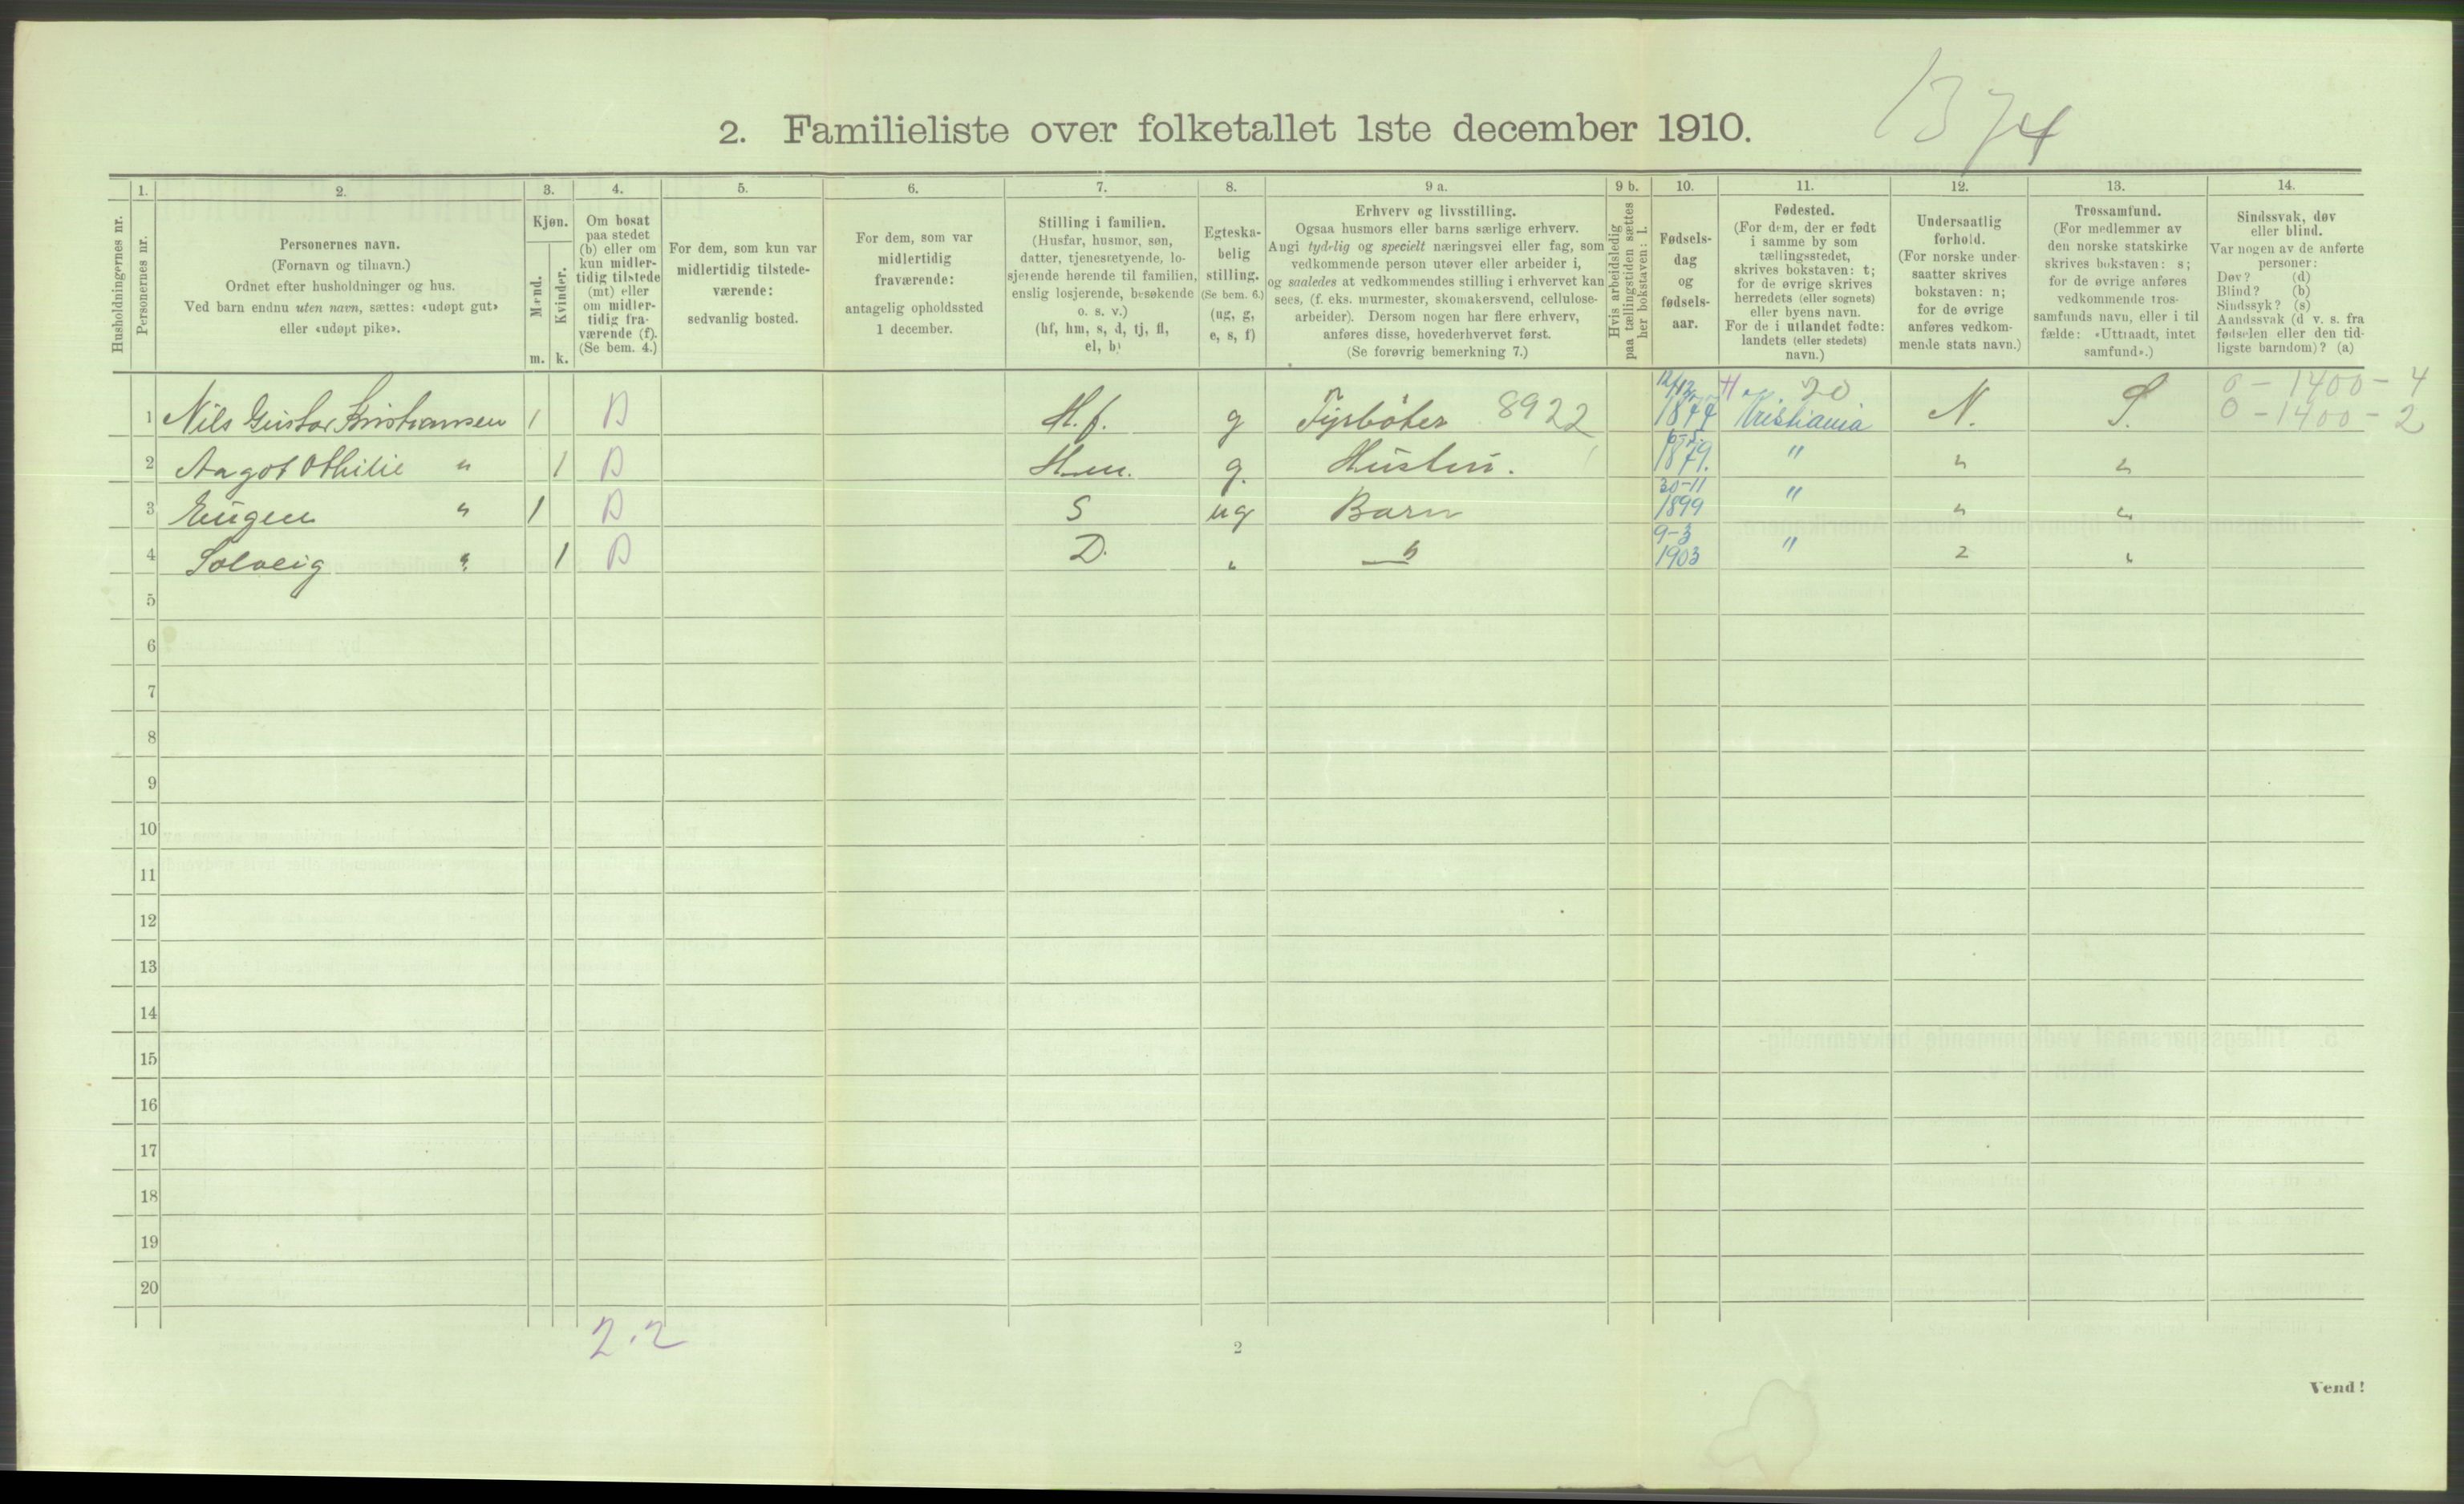 1374
2. Familieliste over folketallet 1ste december 1910.
Husholdningernes nr.
1. Personernes nr.
2. Personernes navn.
(Fornavn og tilnavn.)
Ordnet efter husholdninger og hus.
Ved barn endnu uten navn, sættes: «udøpt gut»
eller «udøpt pike».
3. Kjøn.
Mænd. m.
Kvinder. k.
4. Om bosat
paa stedet
(b) eller om
kun midler-
tidig tilstede
(mt) eller
om midler-
tidig fra-
værende (f).
(Se bem. 4.)
5. For dem, som kun var
midlertidig tilstede-
værende:
sedvanlig bosted.
6. For dem, som var
midlertidig
fraværende:
antagelig opholdssted
1 december.
7. Stilling i familien.
(Husfar, husmor, søn,
datter, tjenestetyende, lo-
sjerende hørende til familien,
enslig losjerende, besøkende
o. s. v.)
(hf, hm, s, d, tj, fl,
el, b)
8. Egteska-
belig
stilling.
(Se bem. 6.)
(ug, g,
e, s, f)
9 a. Erhverv og livsstilling.
Ogsaa husmors eller barns særlige erhverv.
Angi tydelig og specielt næringsvei eller fag, som
vedkommende person utøver eller arbeider i,
og saaledes at vedkommendes stilling i erhvervet kan
sees, (f. eks. murmester, skomakersvend, cellulose-
arbeider). Dersom nogen har flere erhverv,
anføres disse, hovederhvervet først.
(Se forøvrig bemerkning 7.)
9 b. Hvis arbeidsledig
paa tællingstiden sættes
her bokstaven: l.
10. Fødsels-
dag
og
fødsels-
aar.
11. Fødested.
(For dem, der er født
i samme by som
tællingsstedet,
skrives bokstaven: t;
for de øvrige skrives
herredets (eller sognets)
eller byens navn.
For de i utlandet fødte:
landets (eller stedets)
navn.)
12. Undersaatlig
forhold.
(For norske under-
saatter skrives
bokstaven: n;
for de øvrige
anføres vedkom-
mende stats navn.)
13. Trossamfund.
(For medlemmer av
den norske statskirke
skrives bokstaven: s;
for de øvrige anføres
vedkommende tros-
samfunds navn, eller i til-
fælde: «Uttraadt, intet
samfund».)
14. Sindssvak, døv
eller blind.
Var nogen av de anførte
personer:
Døv? (d)
Blind? (b)
Sindssyk? (s)
Aandssvak (d. v. s. fra
fødselen eller den tid-
ligste barndom)? (a)
20 0 - 1400 - 4
1 Nils Gustav Kristiansen 1 B H.f. g Fyrbøter 8922 12/12 1877 Kristiania N. S. 0 - 1400 - 2
2 Aagot Othilie " 1 B Hm. g. Hustru. 1879. " " "
3 Eugen " 1 B S ug Barn 30-11 1899 " " "
4 Solveig " 1 B D. " " 9-3 1903 " " "
5
6
7
8
9
10
11
12
13
14
15
16
17
18
19
20
2.2
2
Vend!